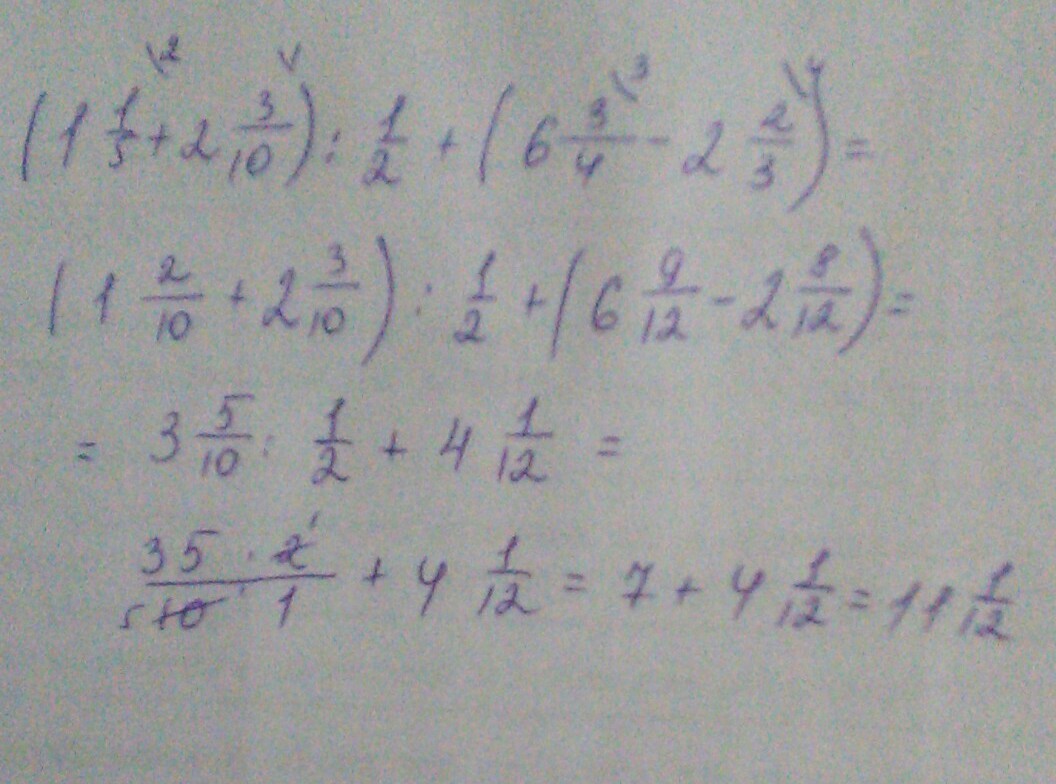 (1 1/5 \2 + 2 3/10 \/) : 1/2 + (6 3/4 \3 - 2 2/3 \4) =
(1 2/10 + 2 3/10) : 1/2 + (6 9/12 - 2 8/12) =
= 3 5/10 : 1/2 + 4 1/12 =
35 · 2 1 / 5 10 · 1 + 4 1/12 = 7 + 4 1/12 = 11 1/12